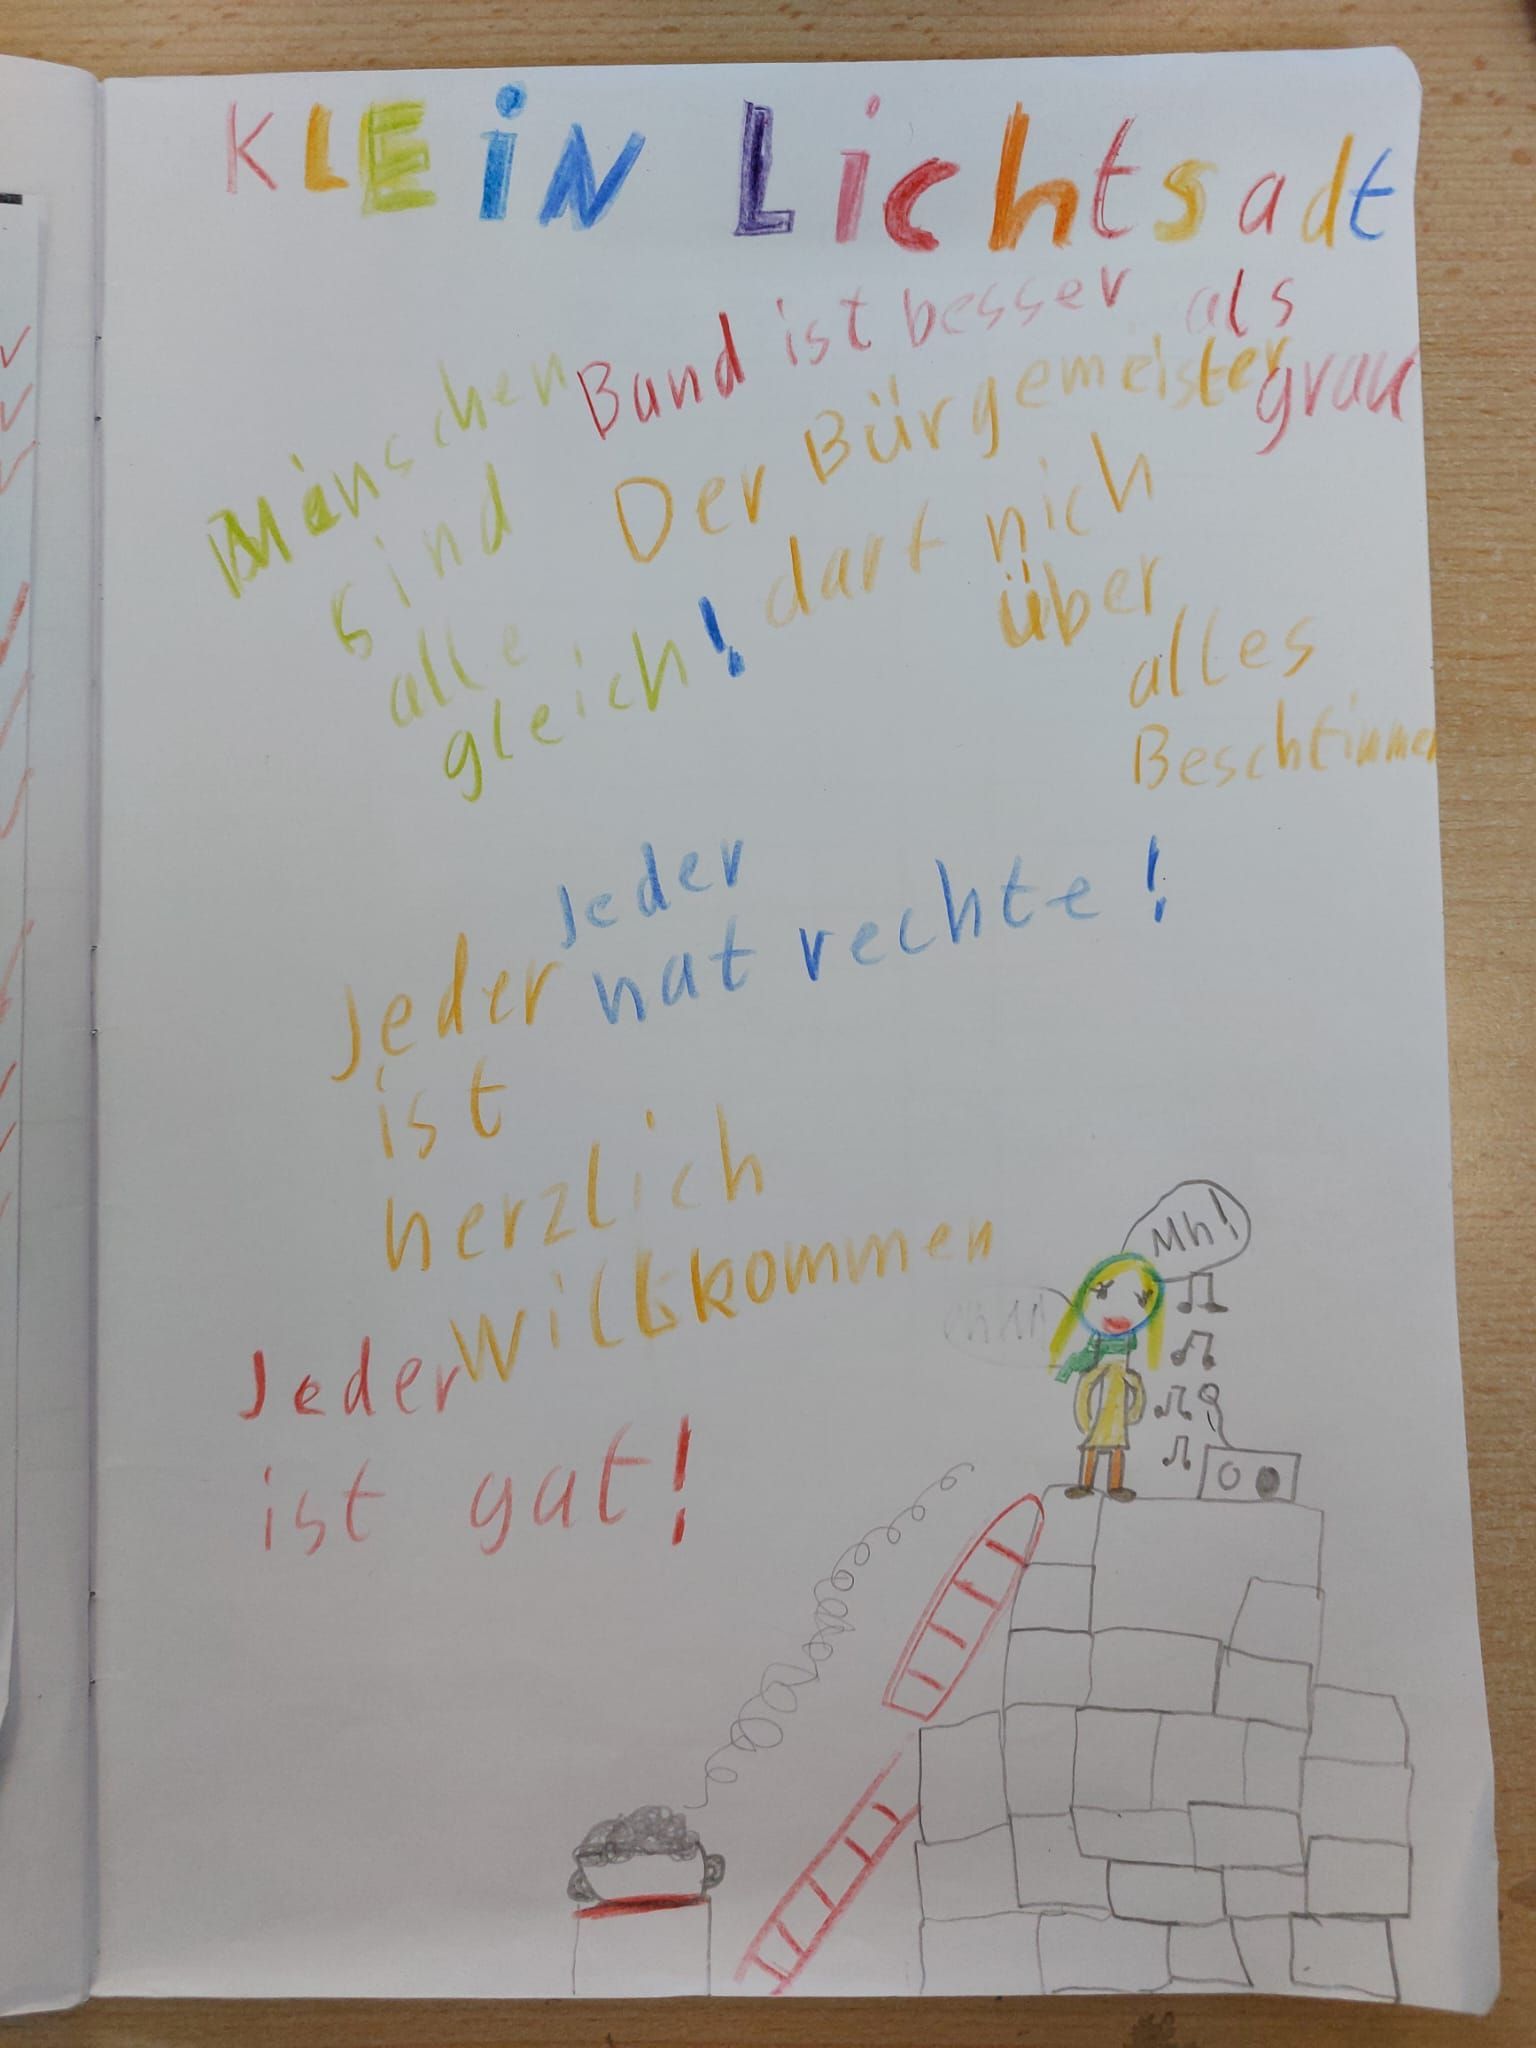 KLEiN Lichtsadt
Band ist besser als
grau
Mänschen
sind
alle
gleich!
Der Bürgemeister
darf nich
über
alles
Beschtimmen
Jeder
hat rechte!
Jeder
ist
herzlich
willkommen
Jeder
ist gat!
Mh!